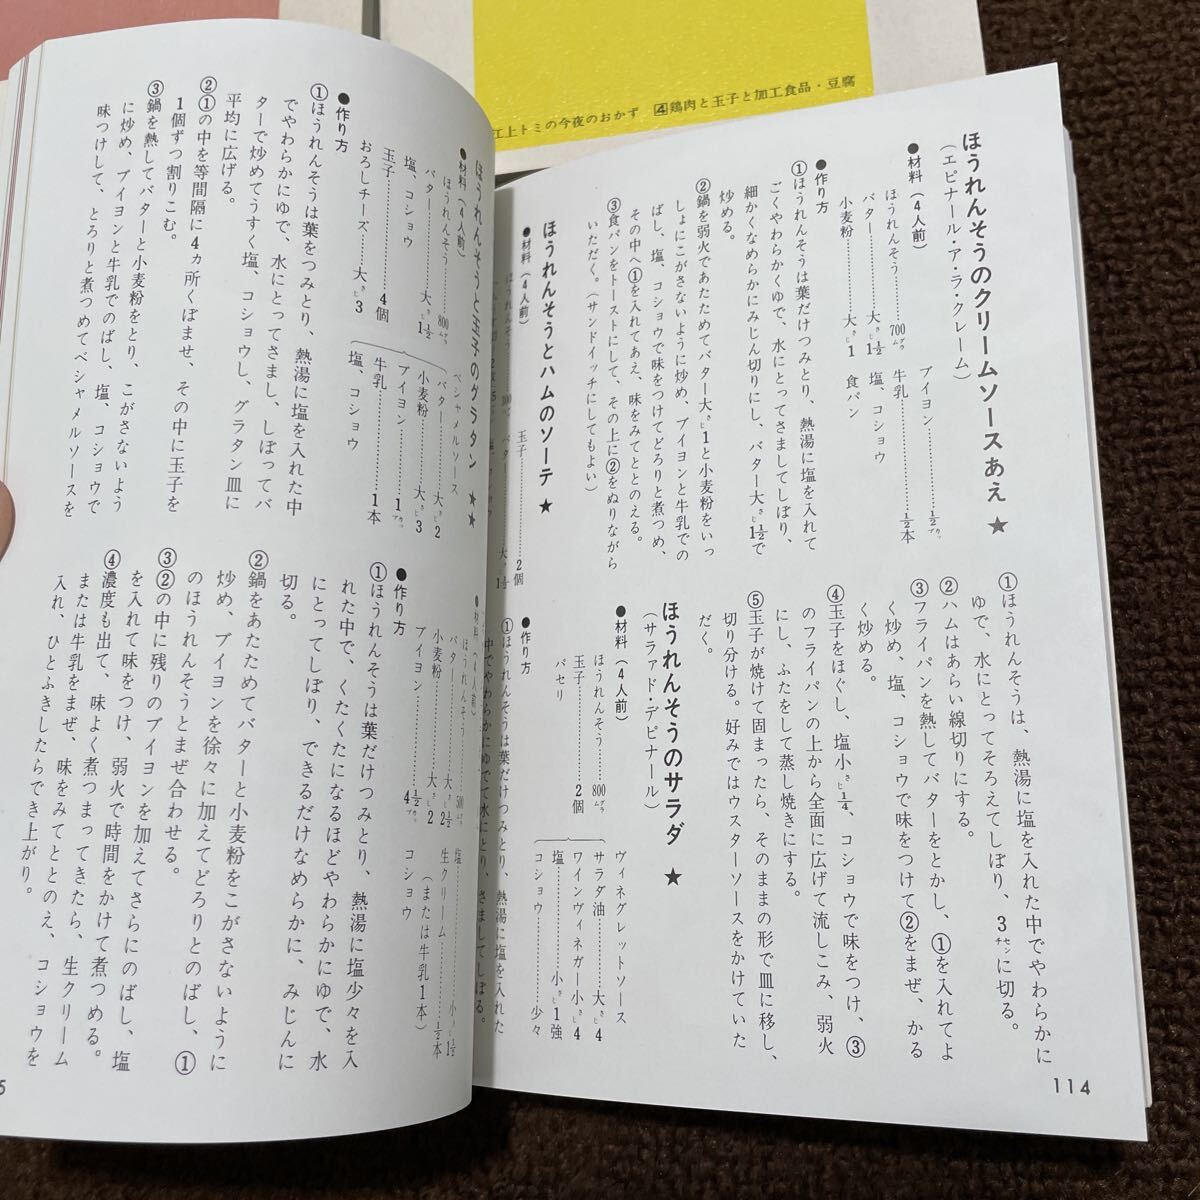 江上トミの今夜のおかず 4鶏肉と玉子と加工食品・豆腐
ほうれんそうのクリームソースあえ ★
(エピナール・ア・ラ・クレーム)
●材料(4人前)
ほうれんそう……700グラ
バター……大さじ1½
小麦粉……大さじ1
ブイヨン……½カップ
牛乳……½本
塩、コショウ
食パン
●作り方
①ほうれんそうは葉だけつみとり、熱湯に塩を入れて
ごくやわらかくゆで、水にとってさましてしぼり、
細かくなめらかにみじん切りにし、バター大さじ1½で
炒める。
②鍋を弱火であたためてバター大さじ1と小麦粉をいっ
しょにこがさないように炒め、ブイヨンと牛乳での
ばし、塩、コショウで味をつけてどろりと煮つめ、
その中へ①を入れてあえ、味をみてととのえる。
③食パンをトーストにして、その上に②をぬりながら
いただく。(サンドイッチにしてもよい)
ほうれんそうとハムのソーテ ★
●材料(4人前)
玉子……2個
バター……大さじ1½
①ほうれんそうは、熱湯に塩を入れた中でやわらかに
ゆで、水にとってそろえてしぼり、3センチに切る。
②ハムはあらい線切りにする。
③フライパンを熱してバターをとかし、①を入れてよ
く炒め、塩、コショウで味をつけて②をまぜ、かる
く炒める。
④玉子をほぐし、塩小さじ¼、コショウで味をつけ、③
のフライパンの上から全面に広げて流しこみ、弱火
にし、ふたをして蒸し焼きにする。
⑤玉子が焼けて固まったら、そのままの形で皿に移し、
切り分ける。好みではウスターソースをかけていた
だく。
ほうれんそうのサラダ ★
(サラァド・デピナール)
●材料(4人前)
ほうれんそう……800グラム
玉子……2個
パセリ
ヴィネグレットソース
サラダ油……大さじ4
ワインヴィネガー小さじ4
塩……小さじ1強
コショウ……少々
●作り方
①ほうれんそうは葉だけつみとり、熱湯に塩を入れた
中でやわらかにゆでて水にとり、さましてしぼる。
114
ほうれんそうと玉子のグラタン ★★
●材料(4人前)
ほうれんそう……800グラム
バター……大さじ1½
塩、コショウ
玉子……4個
おろしチーズ……大さじ3
ベシャメルソース
バター……大さじ2
小麦粉……大さじ3
ブイヨン……1カップ
牛乳……1本
塩、コショウ
●作り方
①ほうれんそうは葉をつみとり、熱湯に塩を入れた中
でやわらかにゆで、水にとってさまし、しぼってバ
ターで炒めてうすく塩、コショウし、グラタン皿に
平均に広げる。
②①の中を等間隔に4ヵ所くぼませ、その中に玉子を
1個ずつ割りこむ。
③鍋を熱してバターと小麦粉をとり、こがさないよう
に炒め、ブイヨンと牛乳でのばし、塩、コショウで
味つけして、とろりと煮つめてベシャメルソースを
●材料(4人前)
ほうれんそう……500グラム
バター……大さじ2½
小麦粉……大さじ2
ブイヨン……4½カップ
塩……小さじ1½
生クリーム……½本
(または牛乳1本)
コショウ
●作り方
①ほうれんそうは葉だけつみとり、熱湯に塩少々を入
れた中で、くたくたになるほどやわらかにゆで、水
にとってしぼり、できるだけなめらかに、みじんに
切る。
②鍋をあたためてバターと小麦粉をこがさないように
炒め、ブイヨンを徐々に加えてどろりとのばし、①
のほうれんそうとまぜ合わせる。
③②の中に残りのブイヨンを加えてさらにのばし、塩
を入れて味をつけ、弱火で時間をかけて煮つめる。
④濃度も出て、味よく煮つまってきたら、生クリーム
または牛乳をまぜ、味をみてととのえ、コショウを
入れ、ひとふきしたらでき上がり。